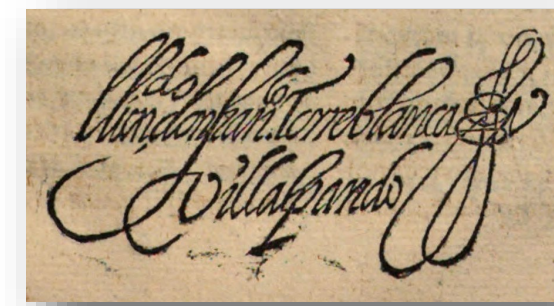 don fran.co Torreblanca
Villalpando